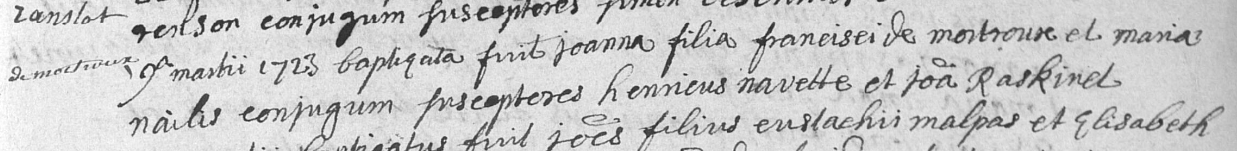 ranslot
renson conjugum susceptores
de mortroux 9a martii 1723 baptizata fuit joanna filia francisci de mortroux et maria
nailis conjugum susceptores henricus navette et joã Raskinet
baptizatus fuit joẽs filius eustachii malpas et Elisabeth